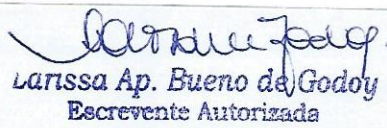 Larissa Ap. Bueno de Godoy
Escrevente Autorizada